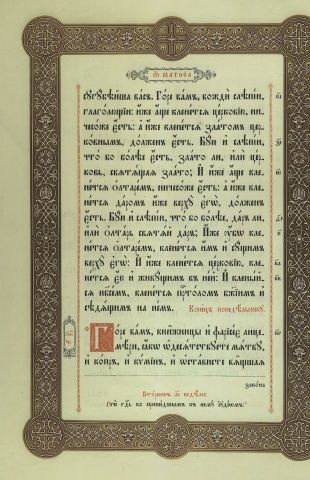 Ѿ МАТѲЕА
сꙋгꙋбѣйша васъ. Го́ре ва́мъ, вожди́ слѣпі́и,
глаго́лющїи: и҆́же а҆́ще клене́тсѧ це́рковїю, ни-
чесо́же є҆́сть: а҆ и҆́же клене́тсѧ зла́томъ цер-
ко́внымъ, до́лженъ є҆́сть. Бꙋ́и и҆ слѣпі́и,
что́ бо бо́лѣе є҆́сть, зла́то ли, и҆лѝ це́р-
ковь, свѧтѧ́щаѧ зла́то; И҆ и҆́же а҆́ще кле-
не́тсѧ ѻ҆лтаре́мъ, ничесо́же є҆́сть: а҆ и҆́же кле-
не́тсѧ да́ромъ и҆́же верхꙋ̀ є҆гѡ̀, до́лженъ
є҆́сть. Бꙋ́и и҆ слѣпі́и, что́ бо бо́лѣе, да́ръ ли,
и҆лѝ ѻ҆лта́рь свѧтѧ́й да́ръ; И҆́же ᲂу҆̀бо кле-
не́тсѧ ѻ҆лтаре́мъ, клене́тсѧ и҆́мъ и҆ сꙋ́щимъ
верхꙋ̀ є҆гѡ̀: И҆ и҆́же клене́тсѧ це́рковїю, клене́-
тсѧ є҆́ю и҆ живꙋ́щимъ въ не́й: И҆ клены́й-
сѧ нб҃се́мъ, клене́тсѧ прⷭ҇то́ломъ бж҃їимъ и҆
сѣдѧ́щимъ на не́мъ. Коне́цъ понедѣ́льникꙋ.
Го́ре ва́мъ, кни́жницы и҆ фарїсе́є лице-
мѣ́ри, ꙗ҆́кѡ ѡ҆десѧ́тствꙋете мѧ́твꙋ
и҆ ко́пръ, и҆ кѵмі́нъ, и҆ ѡ҆ста́висте вѧ̑щшаѧ
зако́на